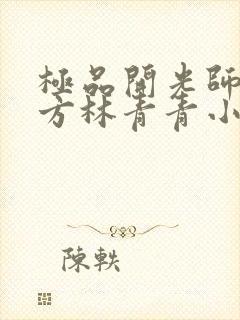 極品開光師
方林青青小
陳軼